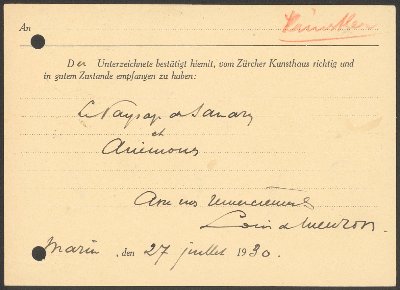 An
Der Unterzeichnete bestätigt hiemit, vom Zürcher Kunsthaus richtig und
in gutem Zustande empfangen zu haben:
Le Paysage de Sanary
et
Anémones
Avec nos remerciements
Louis de Meuron.
Marin, den 27 juillet 1930.